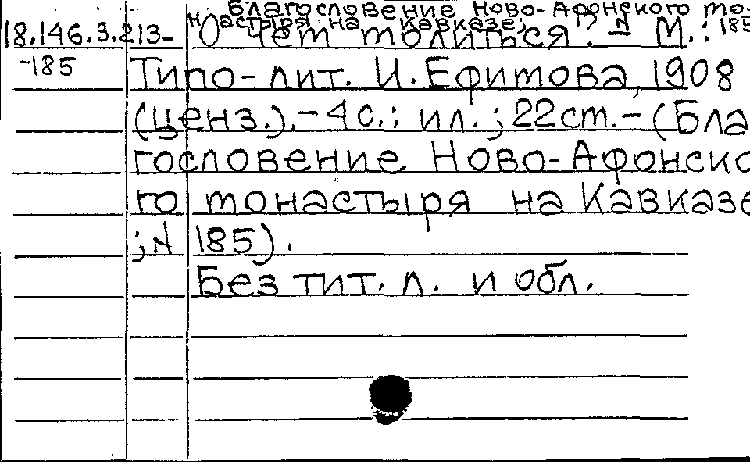 Благословение Ново-Афонского мо-
настыря на Кавказе; N 185
18.146.3.213- О чем молиться. - М.:
-185 Типо-лит. И. Ефимова, 1908
(ценз.). - 4 с.: ил.; 22 cm. - (Бла
гословение Ново-Афонско
го монастыря на Кавказе
; N 185).
Без тит. л. и обл.